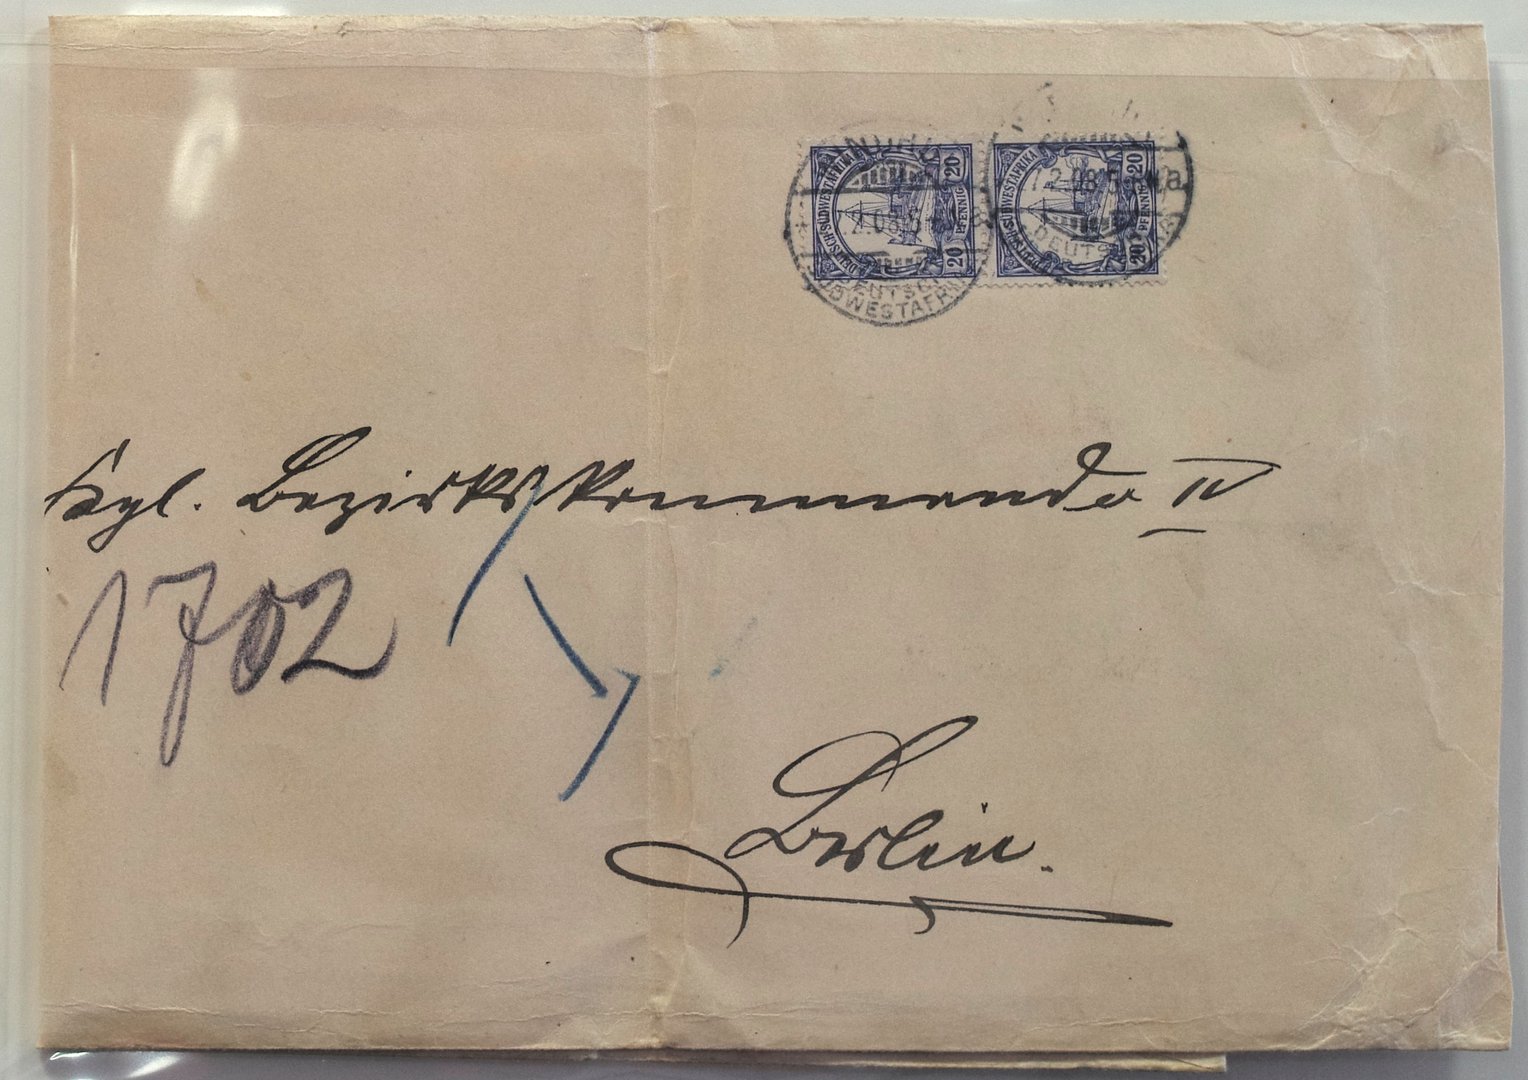 DEUTSCH-SÜDWESTAFRIKA 20 PFENNIG 20
DEUTSCH-SÜDWESTAFRIKA 20 PFENNIG 20
2.08.
DEUTSCH
SÜDWESTAFRIKA
7.2.08.5
DEUTSCH
Kgl. Bezirkskommando IV
1702
Berlin.